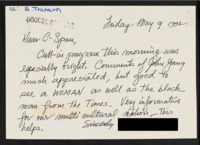 Friday May 9
Dear C-Span,
Call-in program this morning was
especially bright. Comments of John Yang
much appreciated, but good to
see a WOMAN as well as the black
man from the Times. Very informative
for our multi cultural nation, this
helps. Sincerely